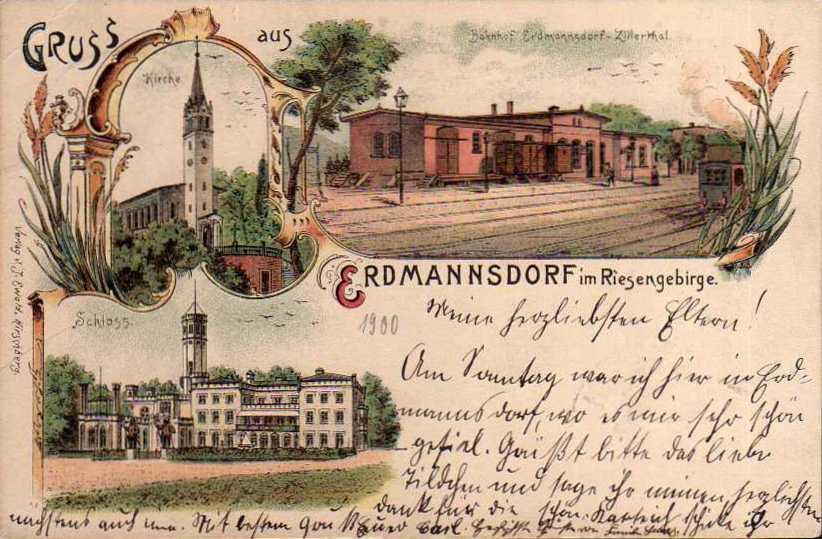 Gruss aus
Kirche
Bahnhof Erdmannsdorf-Zillerthal
Erdmannsdorf im Riesengebirge.
Schloss.
1900
Meine herzliebsten Eltern!
Am Sonntag war ich hier in Erd-
mannsdorf, wo es mir sehr schön
gefiel. Grüßt bitte das liebe
und sage ihr meinen herzlichsten
dank für die schön. schicke ihr
nächstens auch eine. Mit bestem Euer Carl.